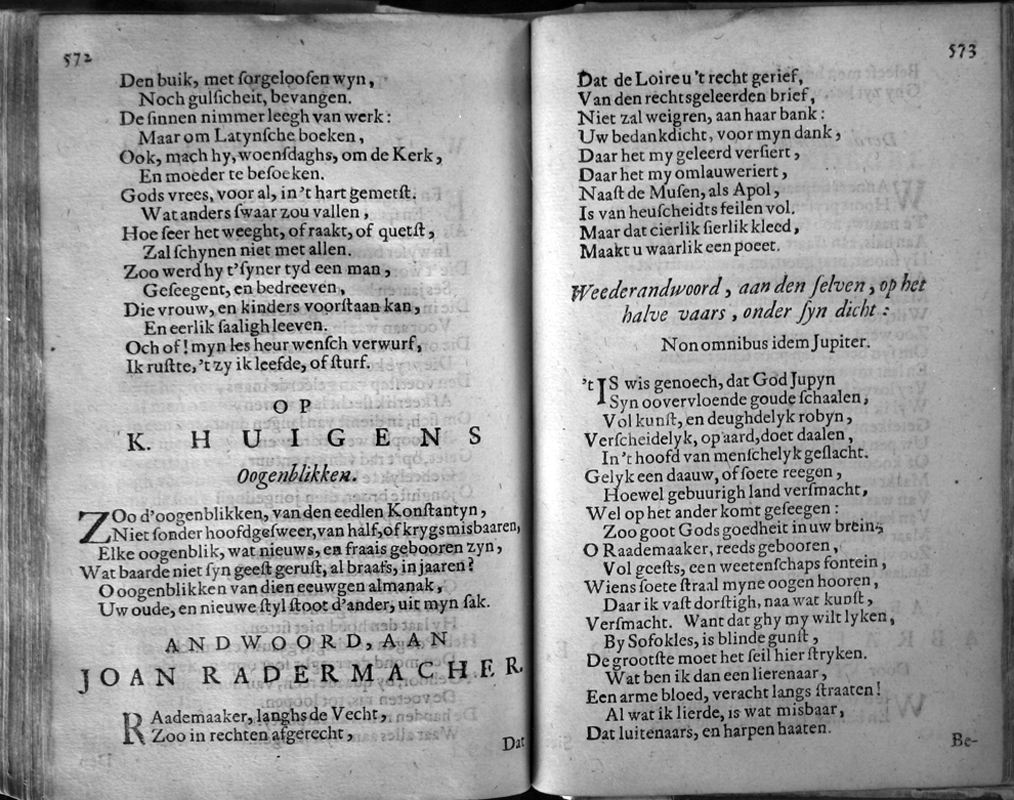 572
Den buik, met ſorgelooſen wyn,
Noch gulſicheit, bevangen.
De ſinnen nimmer leegh van werk:
Maar om Latynſche boeken,
Ook, mach hy, woenſdaghs, om de Kerk,
En moeder te beſoeken.
Gods vrees, voor al, in't hart gemetſt.
Wat anders ſwaar zou vallen,
Hoe ſeer het weeght, of raakt, of quetſt,
Zal ſchynen niet met allen.
Zoo werd hy t'ſyner tyd een man,
Geſeegent, en bedreeven,
Die vrouw, en kinders voorſtaan kan,
En eerlik ſaaligh leeven.
Och of! myn les heur wenſch verwurf,
Ik ruſtte, 't zy ik leefde, of ſturf.
OP
K. HUIGENS
Oogenblikken.
ZOo d'oogenblikken, van den eedlen Konſtantyn,
Niet ſonder hoofdgeſweer, van half, of krygsmisbaaren,
Elke oogenblik, wat nieuws, en fraais gebooren zyn,
Wat baarde niet ſyn geeſt geruſt, al braafs, in jaaren?
O oogenblikken van dien eeuwgen almanak,
Uw oude, en nieuwe ſtyl ſtoot d'ander, uit myn ſak.
ANDWOORD, AAN
JOAN RADERMACHER.
RAademaaker, langhs de Vecht,
Zoo in rechten afgerecht,
Dat
573
Dat de Loire u 't recht gerief,
Van den rechtsgeleerden brief,
Niet zal weigren, aan haar bank:
Uw bedankdicht, voor myn dank,
Daar het my geleerd verſiert,
Daar het my omlauweriert,
Naaſt de Muſen, als Apol,
Is van heuſcheidts feilen vol.
Maar dat cierlik ſierlik kleed,
Maakt u waarlik een poeet.
Weederandwoord, aan den ſelven, op het
halve vaars, onder ſyn dicht:
Non omnibus idem Jupiter.
't IS wis genoech, dat God Jupyn
Syn oovervloende goude ſchaalen,
Vol kunſt, en deughdelyk robyn,
Verſcheidelyk, op aard, doet daalen,
In 't hoofd van menſchelyk geſlacht.
Gelyk een daauw, of ſoete reegen,
Hoewel gebuurigh land verſmacht,
Wel op het ander komt geſeegen:
Zoo goot Gods goedheit in uw brein,
O Raademaaker, reeds gebooren,
Vol geeſts, een weetenſchaps fontein,
Wiens ſoete ſtraal myne oogen hooren,
Daar ik vaſt dorſtigh, naa wat kunſt,
Verſmacht. Want dat ghy my wilt lyken,
By Sofokles, is blinde gunſt,
De grootſte moet het ſeil hier ſtryken.
Wat ben ik dan een lierenaar,
Een arme bloed, veracht langs ſtraaten!
Al wat ik lierde, is wat misbaar,
Dat luitenaars, en harpen haaten.
Be-